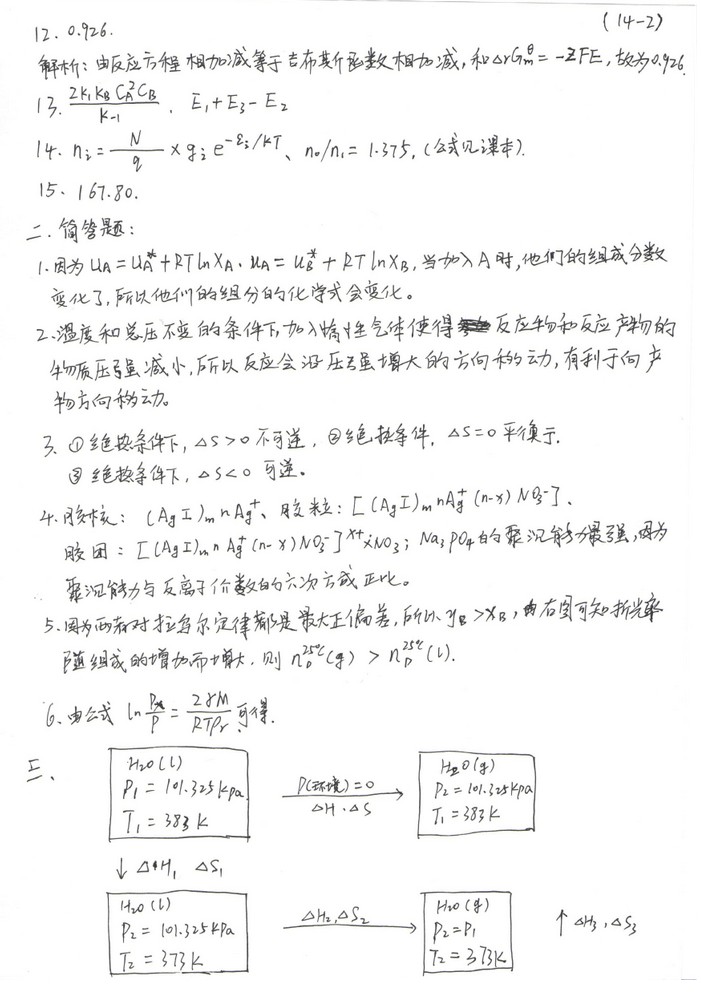 (14-2)
12. 0.926.
解析：由反应方程相加减等于吉布斯函数相加减，和ΔrGmθ = -ZFE，故为0.926.
13. 2K1KBCA²CB/K-1 . E1+E3-E2
14. ni = N/q × gi e^-εi/KT、n0/n1 = 1.375,（公式见课本）.
15、167.80.
二.简答题：
1.因为UA=UA*+RTlnXA.UA=UB*+RTlnXB,当加入A时,他们的组成分数
变化了,所以他们的组分的化学式会变化。
2.温度和总压不变的条件下,加入惰性气体使得反应物和反应产物的
物质压强减小,所以反应会沿压强增大的方向移动,有利于向产
物方向移动。
3. ①绝热条件下,ΔS>0不可逆,②绝热条件,ΔS=0平衡于.
③绝热条件下,ΔS<0可逆。
4.胶核：(AgI)m nAg+、胶粒：[(AgI)m nAg+(n-x)NO3-]、
胶团：[(AgI)m n Ag+(n-x)NO3-]x+xNO3; Na3PO4的聚沉能力最强,因为
聚沉能力与反离子价数的六次方成正比。
5.因为两者对拉乌尔定律都是最大正偏差,所以yB>xB,由右图可知折光率
随组成的增加而增大,则nD25℃(g)>nD25℃(l).
6.由公式 ln Pr/P = 2γM/RTρr 可得.
三、
H2O(l)
P1=101.325kpa
T1=383K
P(环境)=0
ΔH.ΔS
H2O(g)
P2=101.325kpa
T1=383K
↓ΔH1 ΔS1
H2O(l)
P2=101.325kpa
T2=373K
ΔH2,ΔS2
H2O(g)
P2=P1
T2=373K
↑ΔH3,ΔS3